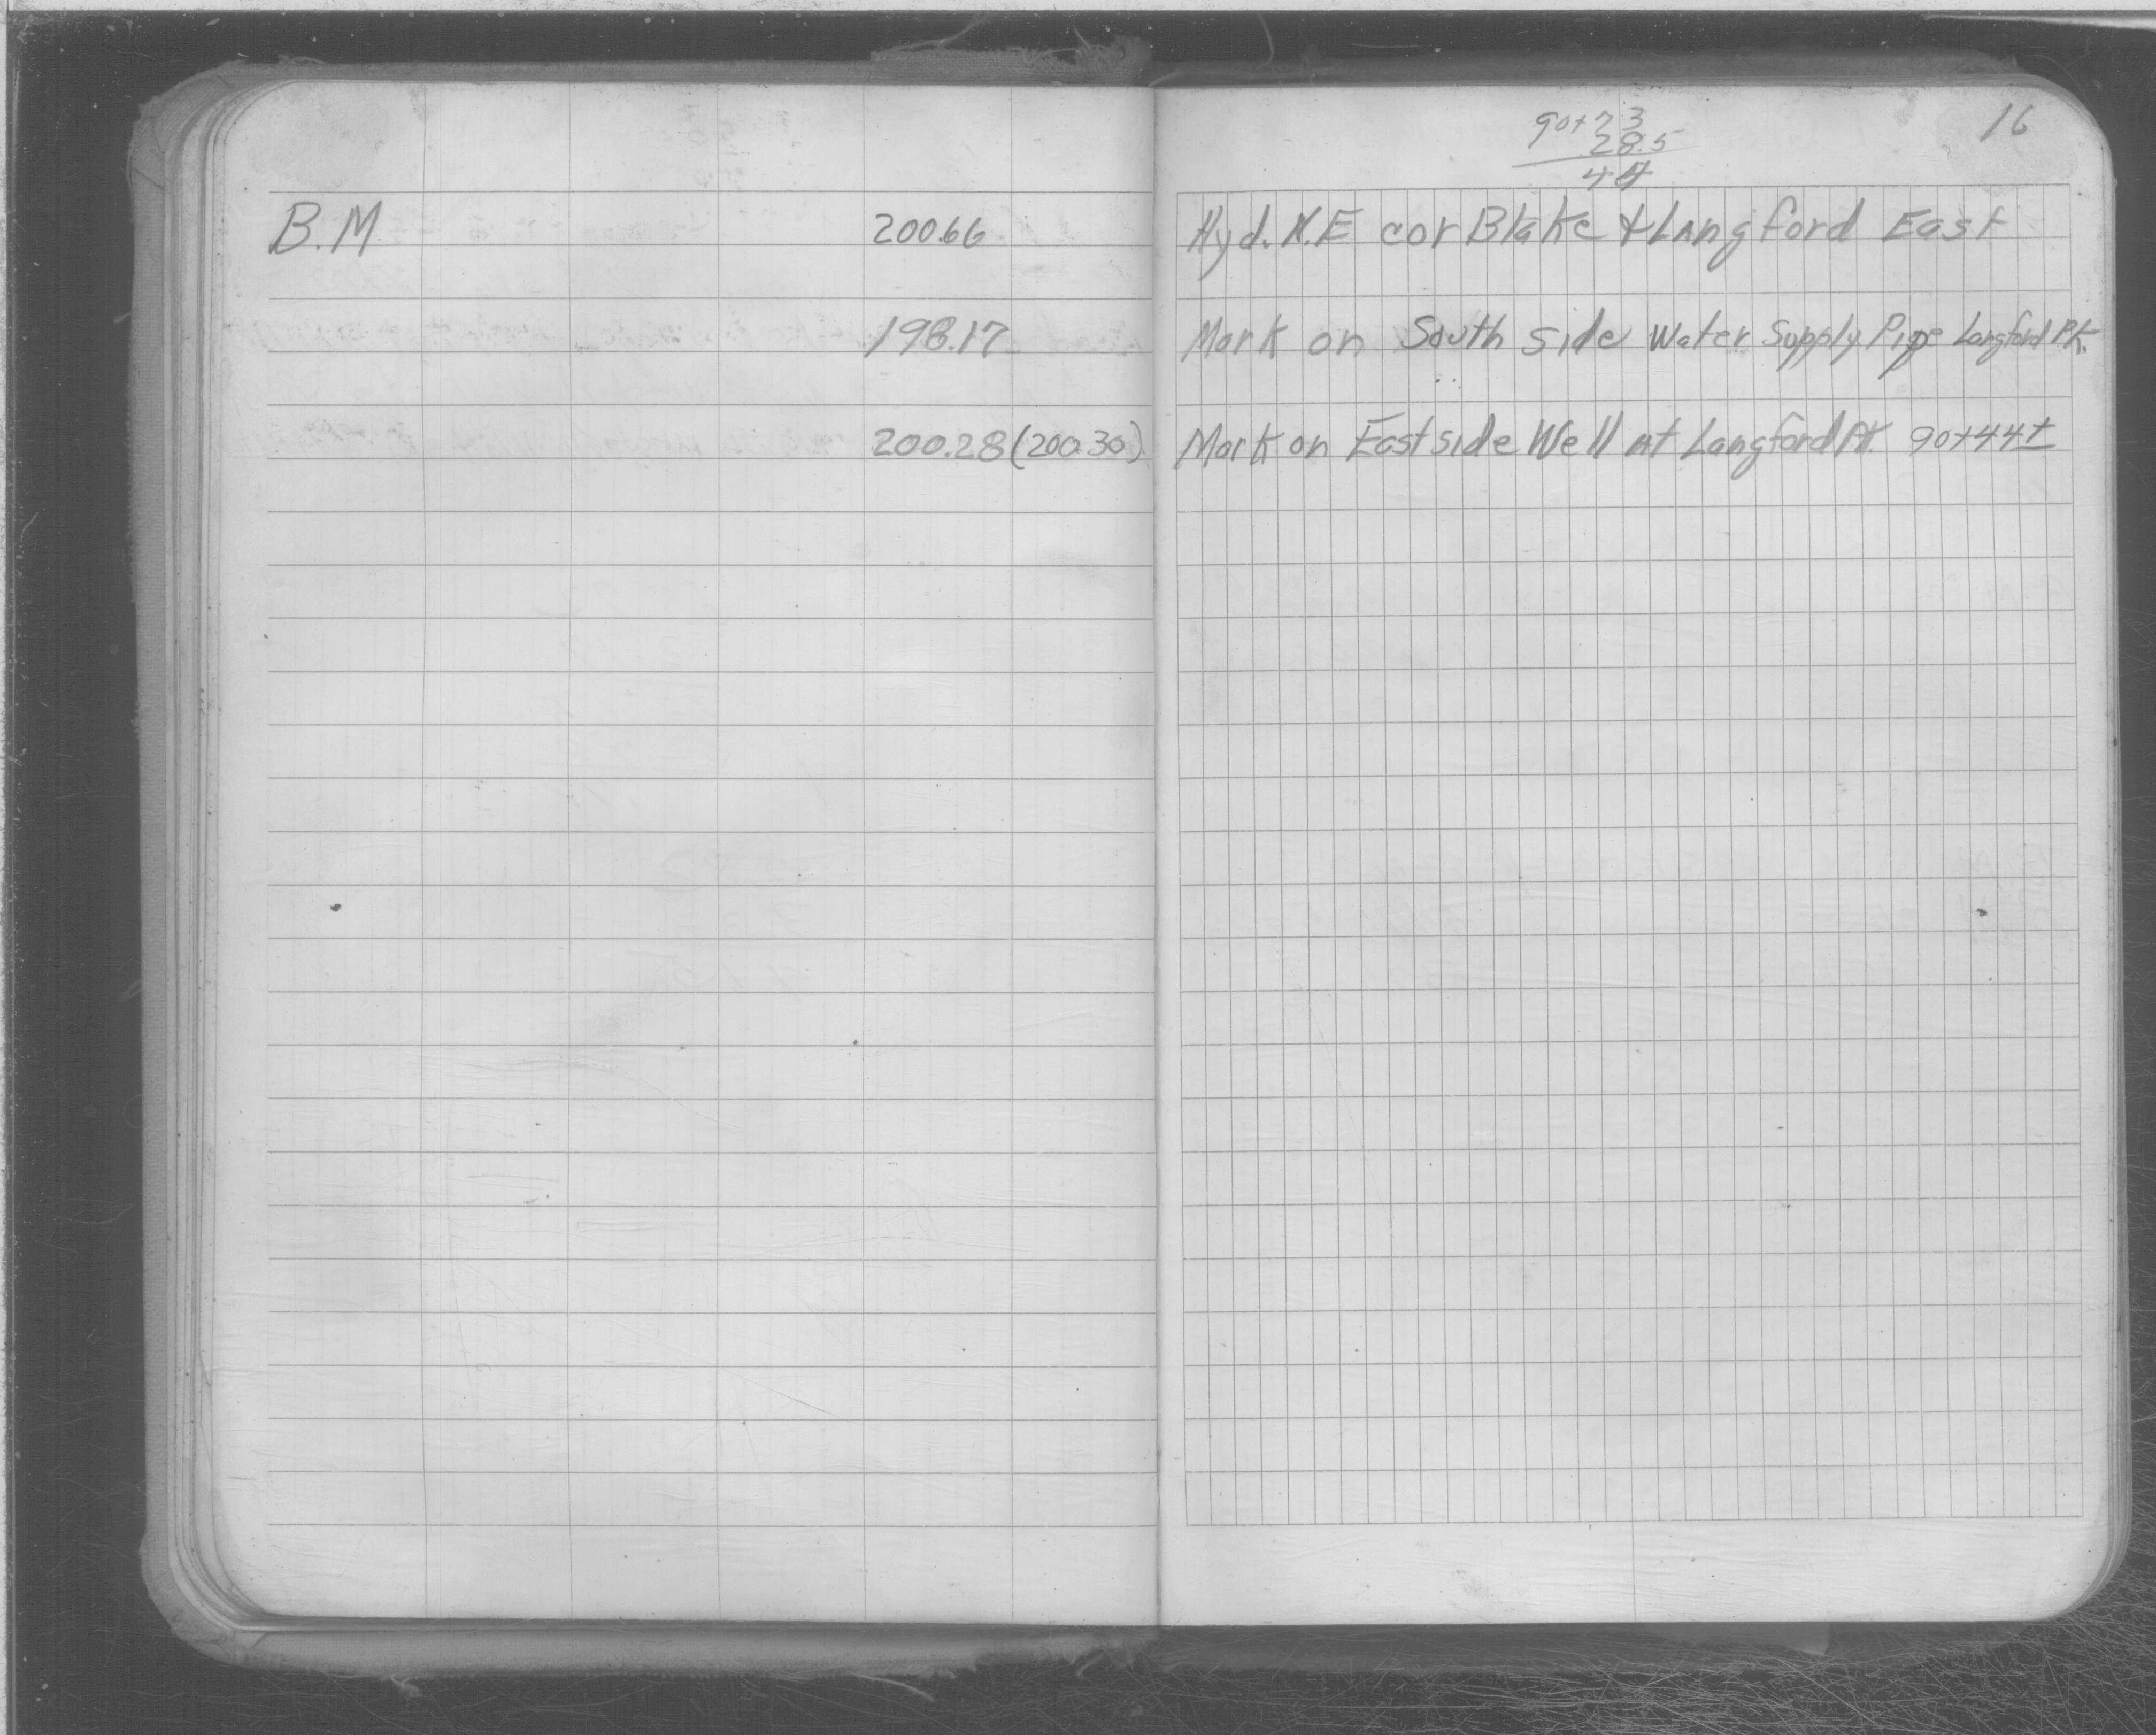 16
90+23
28.5
B.M. 200.66 Hyd. N.E cor Blake & Langford East
198.17 Mark on South side Water Supply Pipe Langford Pk.
200.28 (200.30) Mark on East side Well at Langford Pk. 90+44±